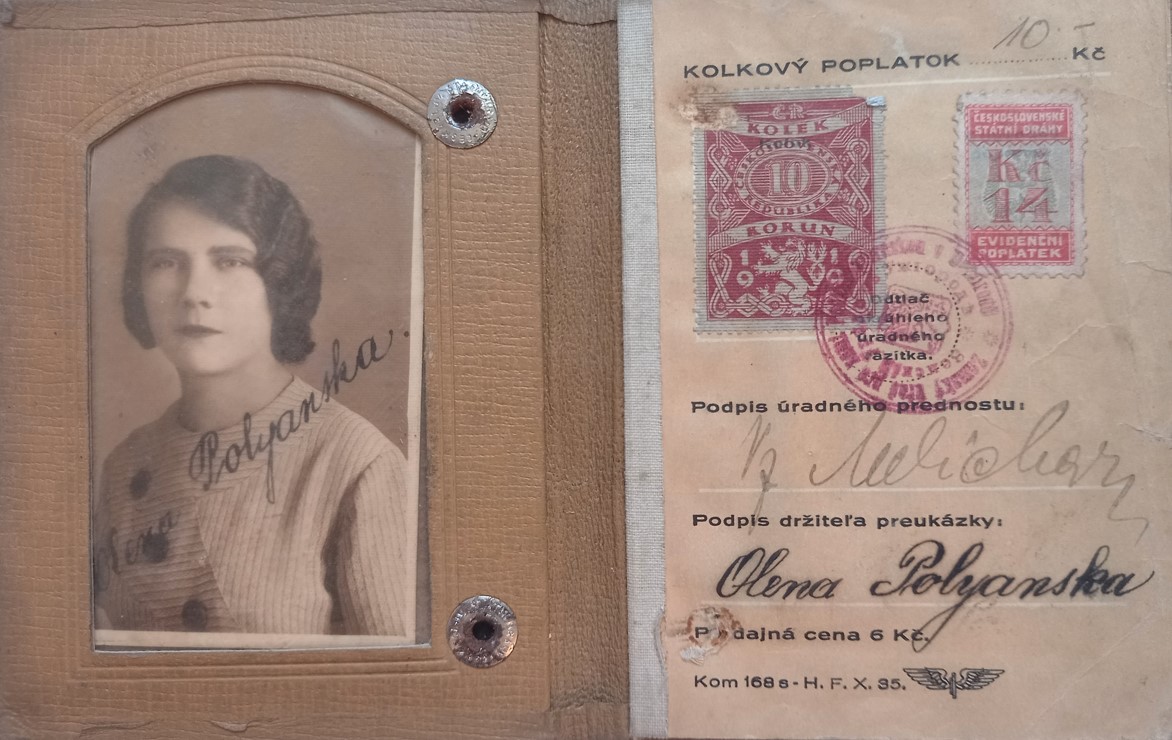 Olena Polyanska.
KOLKOVÝ POPLATOK 10.- Kč
ČR
KOLEK
10
REPUBLIKA
KORUN
19
ČESKOSLOVENSKÉ
STÁTNÍ DRÁHY
Kč
14
EVIDENČNÍ
POPLATEK
úradného
Podpis úradného prednostu:
Podpis držiteľa preukázky:
Olena Polyanska
cena 6 Kč.
Kom 168 s - H. F. X. 35.